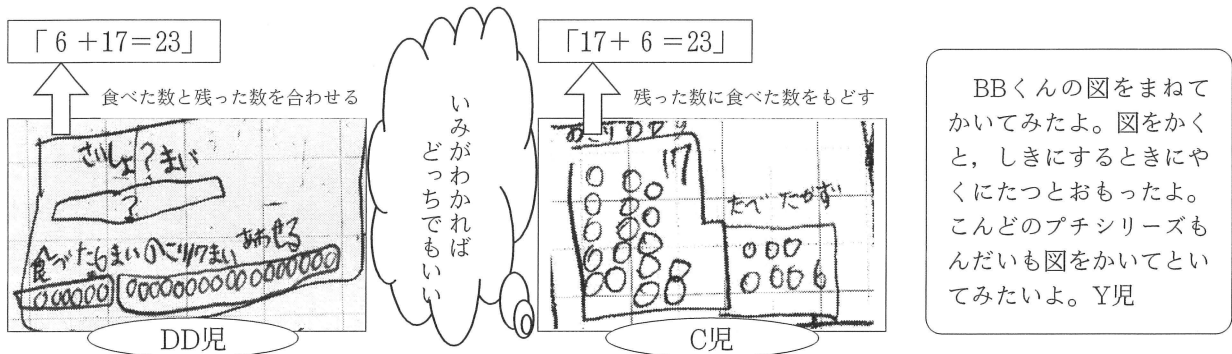 「 6 +17=23」
食べた数と残った数を合わせる
さいしょ?まい
?
食べた6まい のこり17まい あわせる
DD児
いみがわかれば
どっちでもいい
「17+ 6 =23」
残った数に食べた数をもどす
17
たべたかず
C児
BBくんの図をまねて
かいてみたよ。図をかく
と,しきにするときにや
くにたつとおもったよ。
こんどのプチシリーズも
んだいも図をかいてとい
てみたいよ。Y児